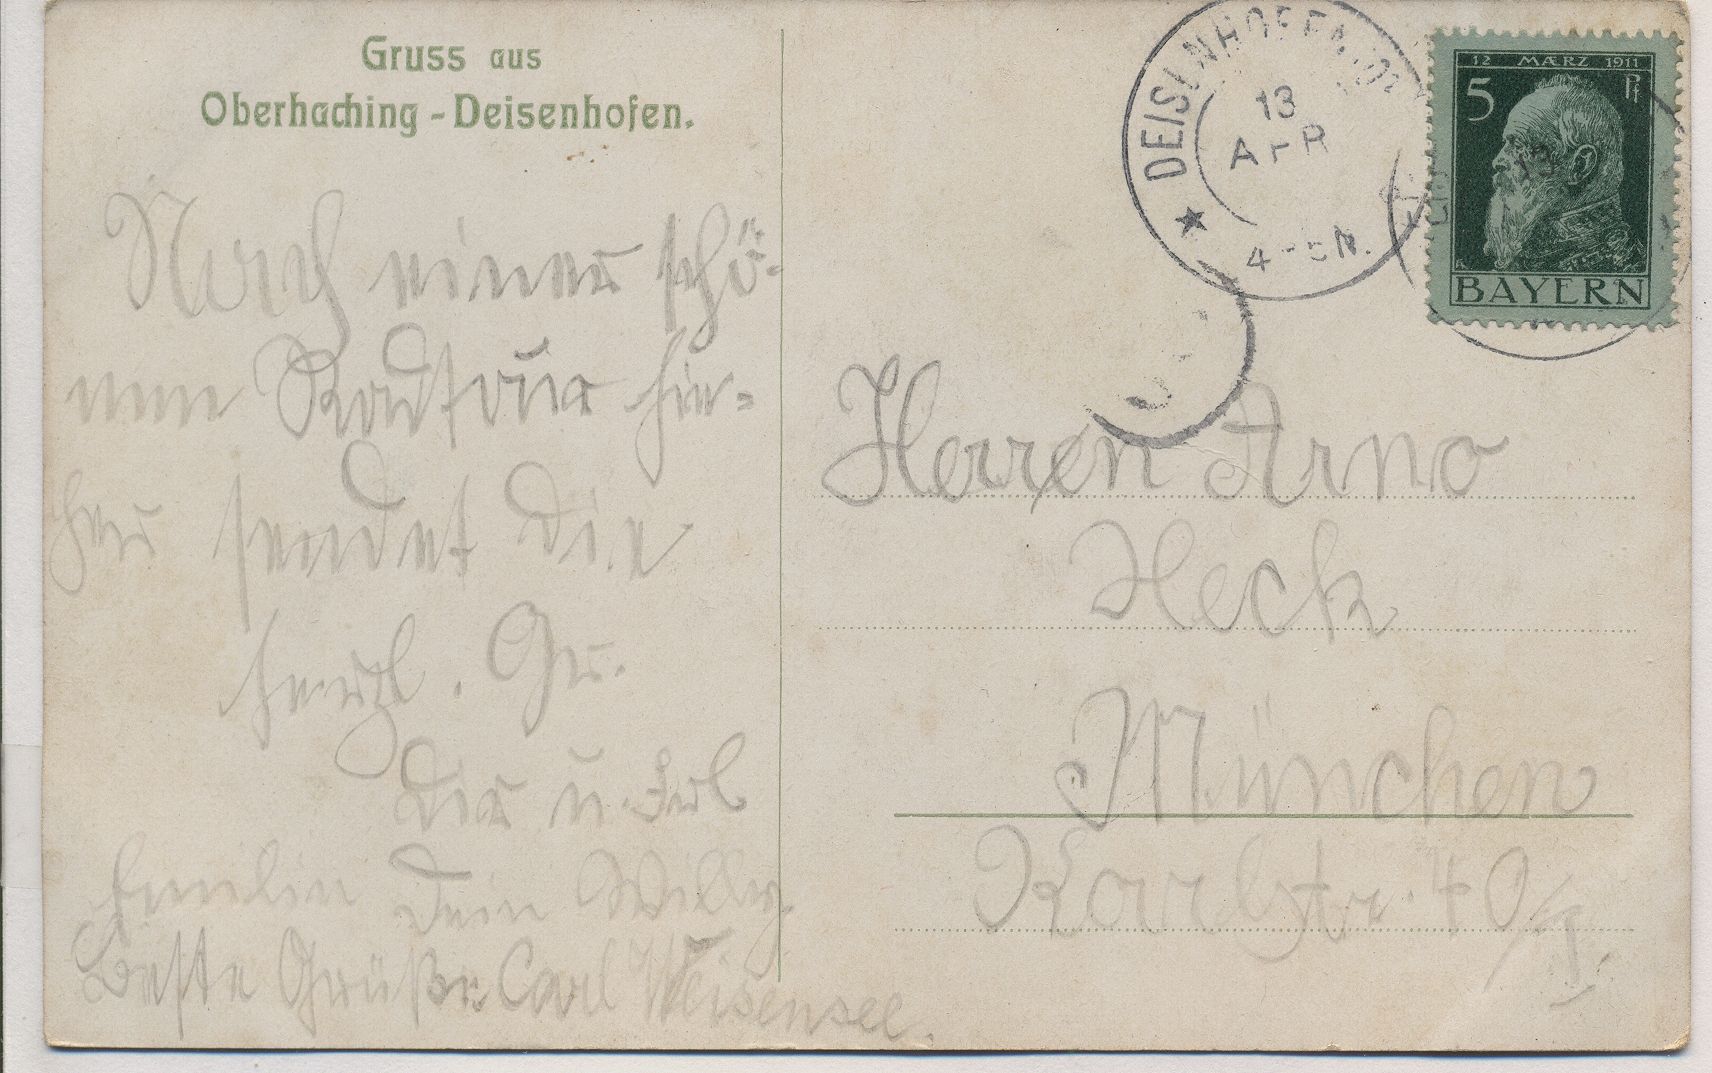 Gruss aus
Oberhaching - Deisenhofen.
Nach einer schö-
nen Radtour hie-
her sendet die
herzl. Gr.
Dir u.
Familie Dein Willy.
Beste Grüße Carl Weisensee.
DEISENHOFEN
13
APR
4-5N.
12 MÆRZ 1911
5 Pf
13
BAYERN
Herren Arno
Heck
München
Karlstr. 40/I.